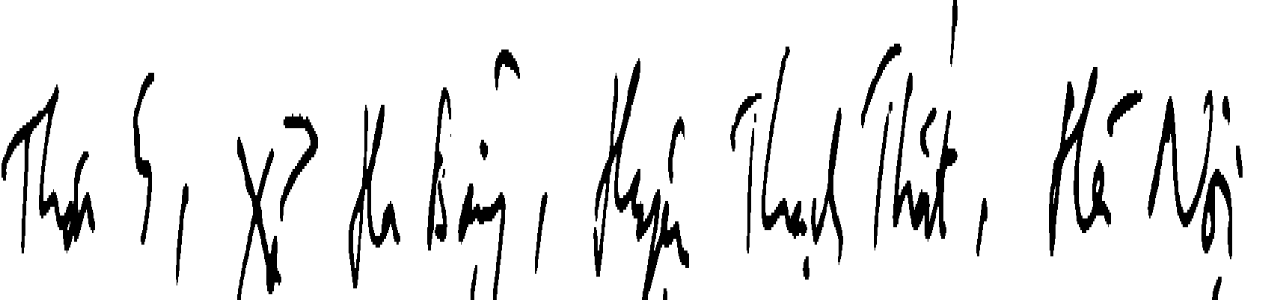 Thôn 5, Xã Hạ Bằng, Huyện Thạch Thất, Hà Nội